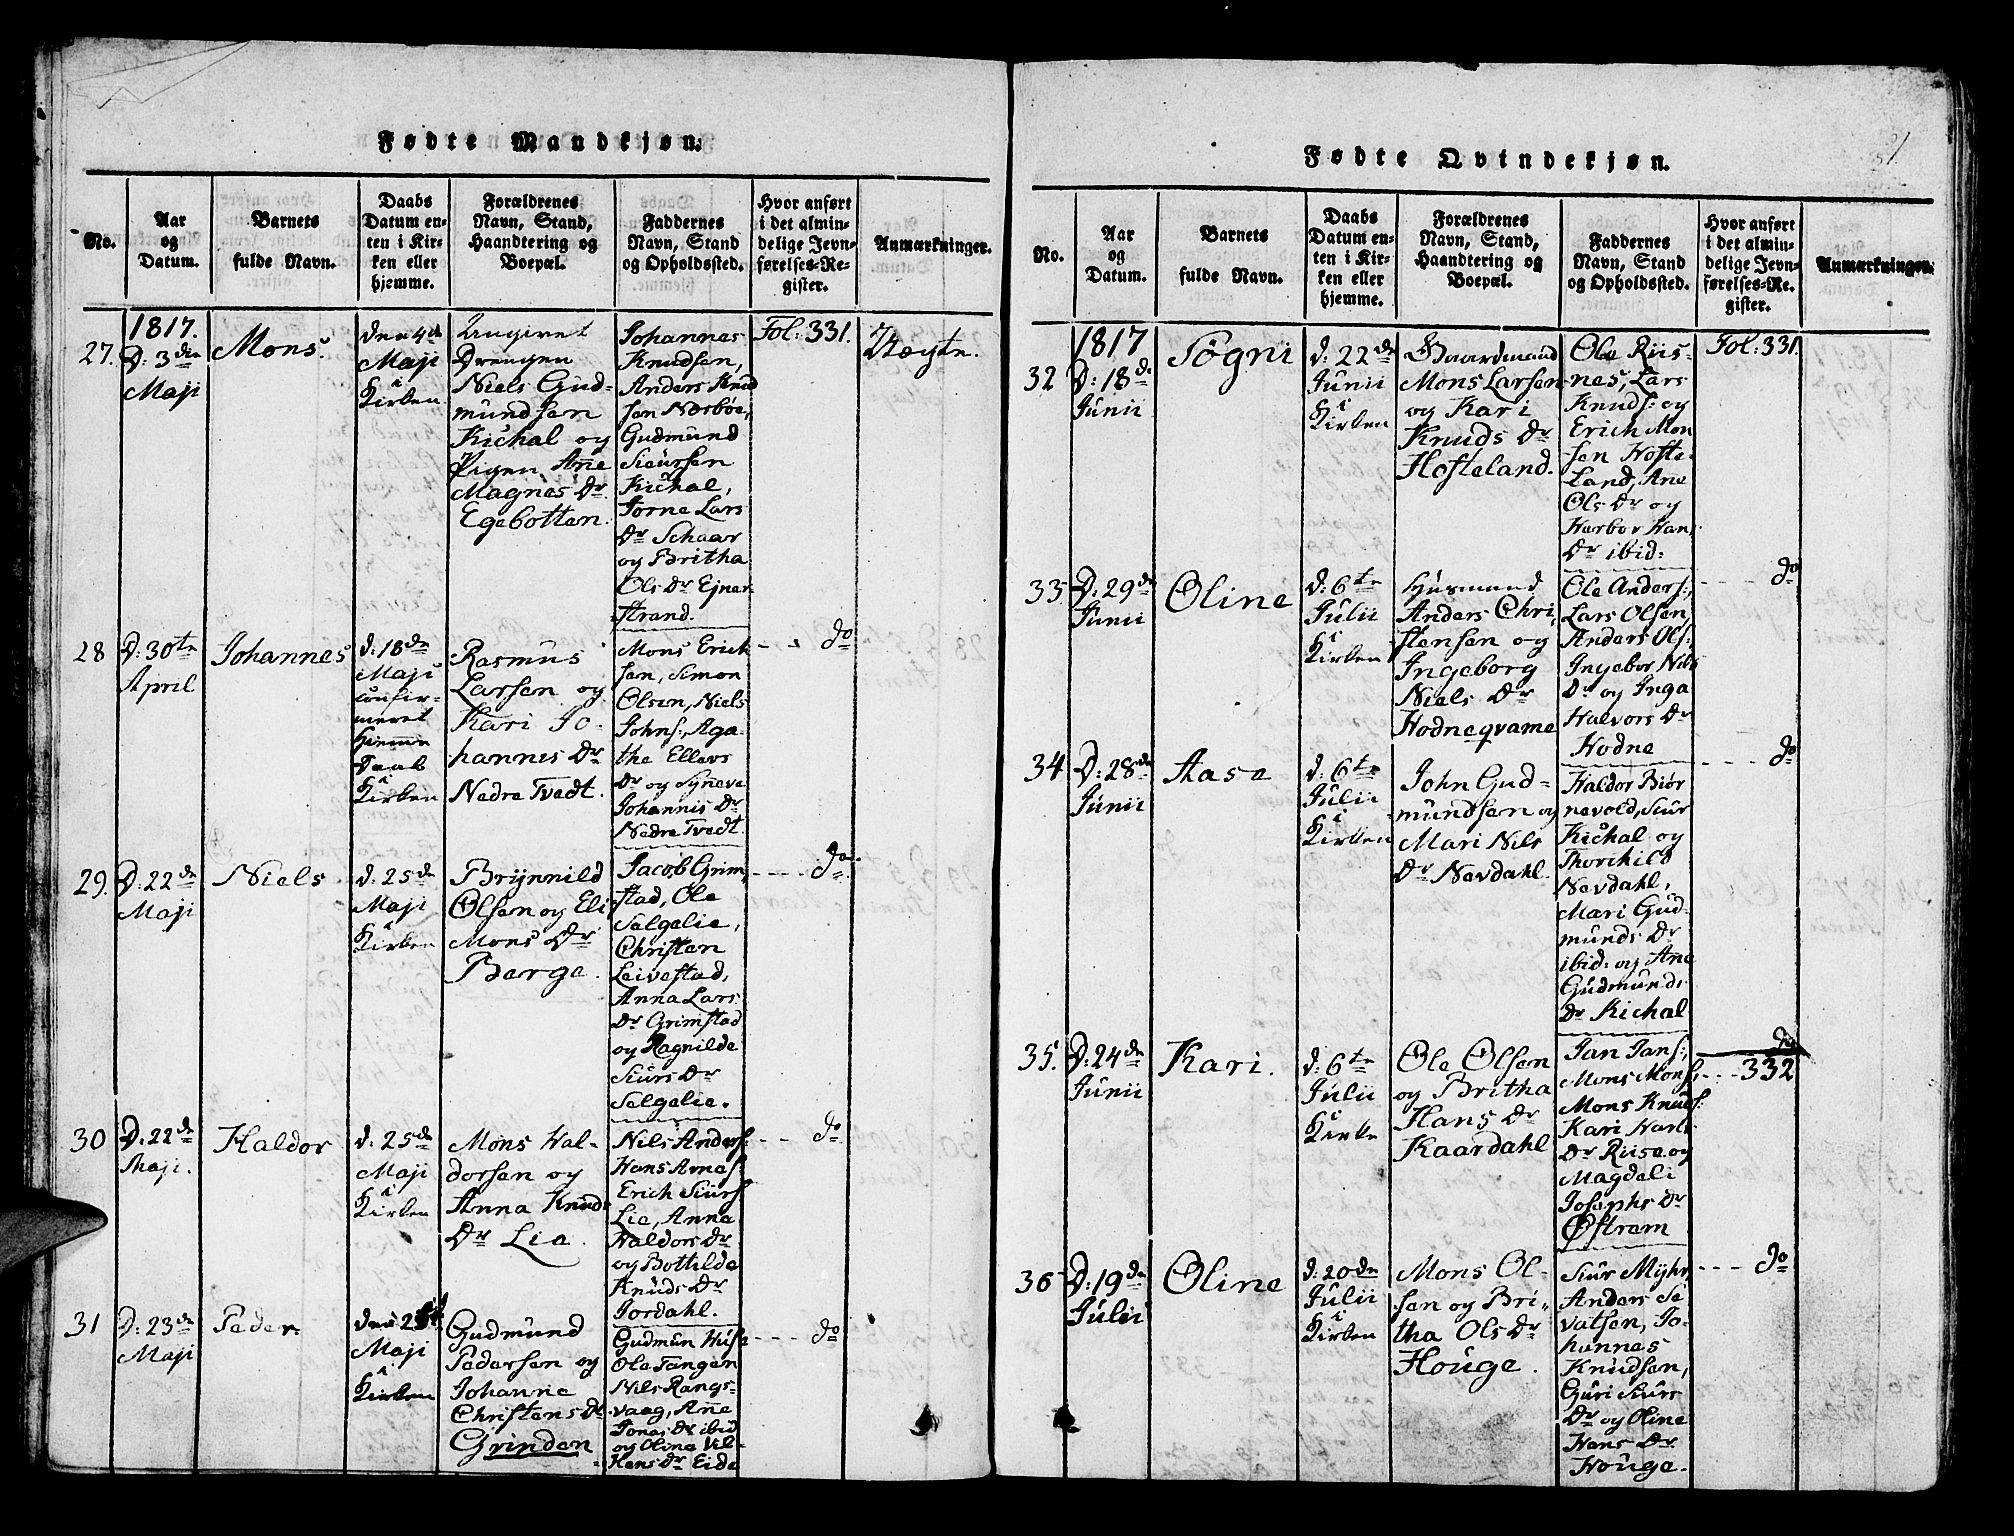 Fødte Mandkjøn.
No.
Aar
og
Datum.
Barnets
fulde Navn.
Daabs
Datum en-
ten i Kir-
ken eller
hjemme.
Forældrenes
Navn, Stand,
Haandtering og
Boepæl.
Faddernes
Navn, Stand
og Opholdssted.
Hvor anført
i det almin-
delige Jevn-
førelses-Re-
gister.
Anmærkninger.
1817.
27.
D: 3die
Maji
Mons.
den 4de
Maji
i
Kirken
Ungivet
Drengen
Niels Gud-
mundsen
Kichal og
Pigen Anne
Magnes Dr
Egebotten.
Johannes
Knudsen,
Anders Knud
sen Nesbøe,
Gudmund
Siursen
Kichal,
Jorne Lars
Dr Schaar
og Britha
Ols Dr Ejner-
strand.
Fol: 331.
Uægte.
28
D: 30te
April
Johannes
d: 18de
Maji
confir-
meret
hiemme
Daab
i
Kirken
Rasmus
Larsen og
Kari Jo-
hannes Dr
Nedre Tvedt.
Mons Erich
sen, Simon
Olsen, Niels
Johns:, Aga-
the Ellevs
Dr og Syneva
Johannis Dr
Nedre Tvedt.
do
29.
D: 22de
Maji
Niels
d: 25de
Maji
i
Kirken
Brynnild
Olsen og Eli
Mons Dr
Berge.
Jacob Grim-
stad, Ole
Selgelie,
Christen
Leivestad,
Anna Lars
Dr Grimstad
og Ragnilde
Siurs Dr
Selgelie.
do
30
D: 22de
Maji.
Haldor
d: 25de
Maji
i
Kirken
Mons Hal-
dorsen og
Anna Knuds
Dr Lie.
Nils Anders:
Hans Arnes:
Erich Siurs:
Lie, Anna
Haldors Dr
og Bottilde
Knuds Dr
Jordahl.
do
31
D: 23de
Maji
Peder
den 25de
Maji
i
Kirken
Gudmund
Pedersen og
Johanne
Christens Dr
Grinden
Gudmun Huse
Ole Tangen
Nils Rangs-
vaag, Anne
Jonas Dr ibid
og Olina Vil-
Hans Dr Eide
do
Fødte Qvindekjøn.
No.
Aar
og
Datum.
Barnets
fulde Navn.
Daabs
Datum en-
ten i Kir-
ken eller
hjemme.
Forældrenes
Navn, Stand,
Haandtering og
Boepæl.
Faddernes
Navn, Stand
og Opholdssted.
Hvor anført
i det almin-
delige Jevn-
førelses-Re-
gister.
Anmærkninger.
1817
32
D: 18de
Junii
Sögni
d: 22de
Junii
i
Kirken
Gaardmand
Mons Larsen
og Kari
Knuds Dr
Hofteland.
Ole Riis-
nes, Lars
Knuds: og
Erich Mon
sen Hofte-
land, Ane
Ols Dr og
Herbor Hans
Dr ibid:
Fol: 331.
33.
D: 29de
Junii
Oline
d: 6te
Julii
i
Kirken
Husmand
Anders Chri-
stensen og
Ingeborg
Niels Dr
Hodneqvame
Ole Anders:,
Lars Olsen,
Anders Ols:
Ingebor Nils
Dr og Inga
Halvors Dr
Hodne
do
34
D: 28de
Junii
Aase
d: 6te
Julii
i
Kirken
John Gud-
mundsen og
Mari Nils
Dr Nevdahl.
Haldor Biør
nevold, Siur
Kichal og
Thorchild
Nevdahl,
Mari Gud-
munds Dr
ibid: og Ane
Gudmunds
Dr Kichal
do
35.
D: 24de
Junii
Kari.
d: 6te
Julii
i
Kirke
Ole Olsen
og Britha
Hans Dr
Kaardahl
Jan Jans:,
Mons Mons:
Mons Knuds:
Kari Harl:
Dr Riise og
Magdeli
Josephs Dr
Østrem
do
332
36
D: 19de
Julii
Oline
d: 20de
Julii
i
Kirken
Mons Ol-
sen og Bri-
tha Ols Dr
Houge.
Siur Myhr,
Anders Se
vatsen, Jo-
hannes
Knudsen,
Guri Siurs
Dr og Oline
Hans Dr
Houge.
do